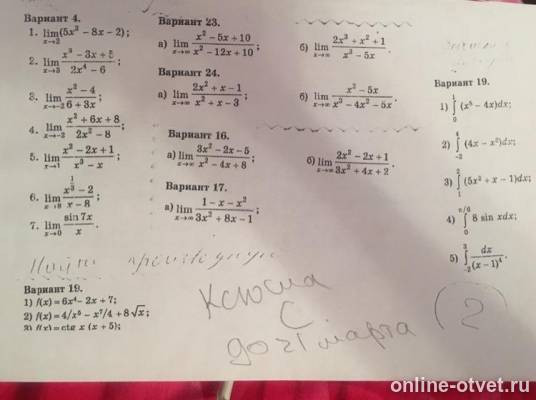 Вариант 4.
1. lim x→2 (5x² – 8x – 2);
2. lim x→3 (x³ – 3x + 5)/(2x⁴ – 6);
3. lim x→–2 (x² – 4)/(6 + 3x);
4. lim x→–2 (x² + 6x + 8)/(2x² – 8);
5. lim x→1 (x² – 2x + 1)/(x³ – x);
6. lim x→8 (x^(1/3) – 2)/(x – 8);
7. lim x→0 (sin 7x)/x.
Вариант 23.
а) lim x→∞ (x² – 5x + 10)/(x² – 12x + 10);
б) lim x→∞ (2x³ + x² + 1)/(x³ – 5x).
Вариант 24.
а) lim x→∞ (2x² + x – 1)/(x² + x – 3);
б) lim x→∞ (x² – 5x)/(x³ – 4x² – 5x).
Вариант 16.
а) lim x→∞ (3x² – 2x – 5)/(x² – 4x + 8);
б) lim x→∞ (2x² – 2x + 1)/(3x² + 4x + 2).
Вариант 17.
а) lim x→∞ (1 – x – x²)/(3x² + 8x – 1);
Вариант 19.
1) ∫₀¹ (x⁵ – 4x)dx;
2) ∫₋₂⁴ (4x – x²)dx;
3) ∫₁² (5x² + x – 1)dx;
4) ∫₀^(π/6) 8 sin xdx;
5) ∫₋₂³ dx/(x – 1)⁴.
Найти
Вариант 19.
1) f(x) = 6x⁴ – 2x + 7;
2) f(x) = 4/x⁵ – x⁷/4 + 8√x;
3) f(x) = ctg x (x + 5);
С
до 21 марта
2
online-otvet.ru